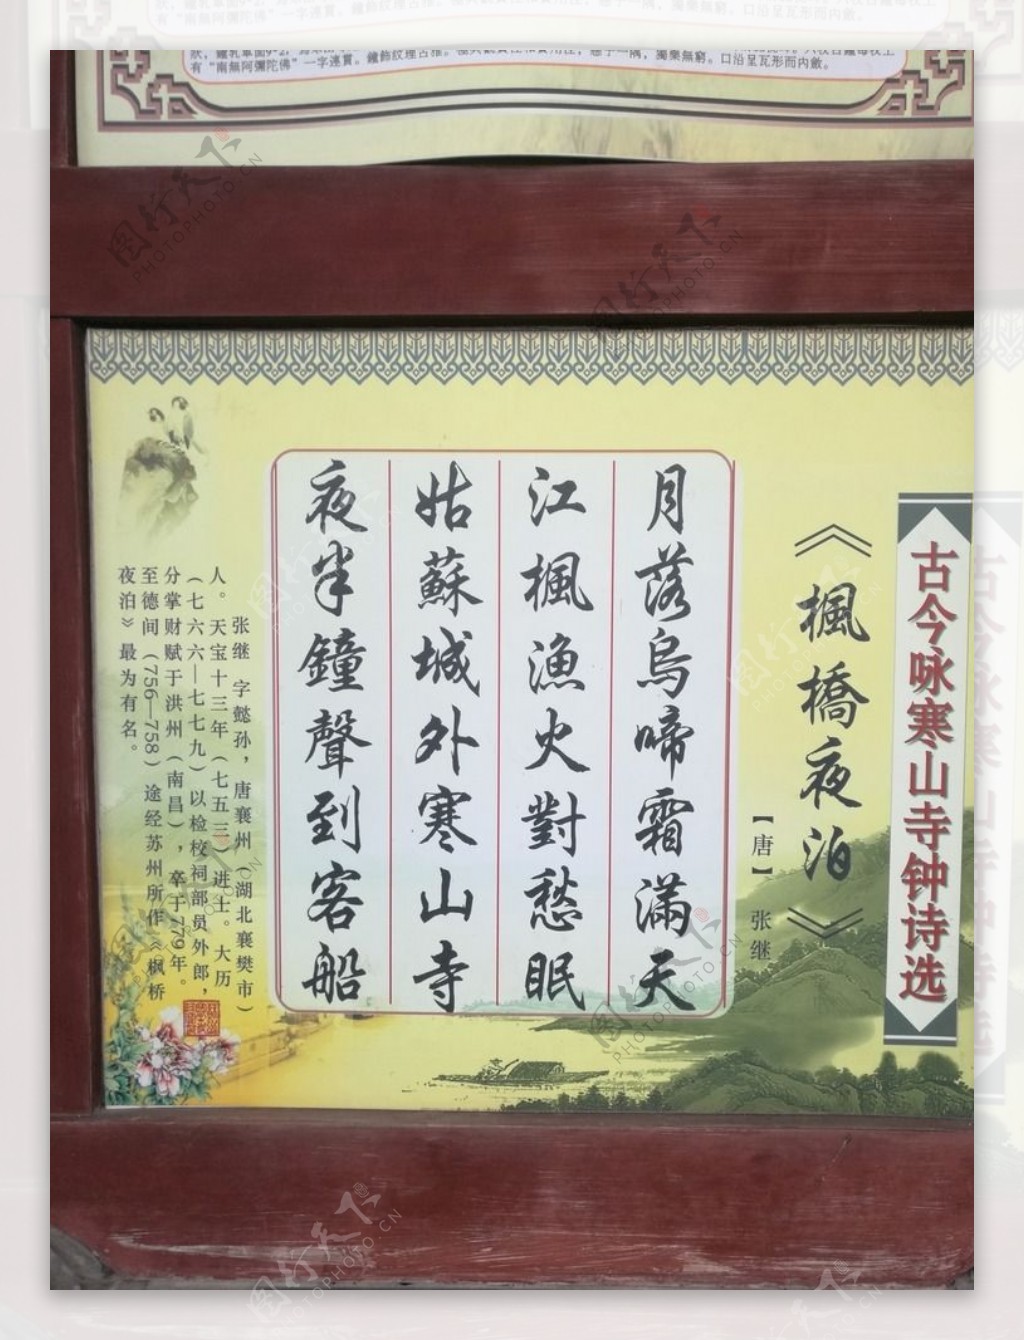 有“南無阿彌陀佛”一字連貫。鐘飾紋理古雅。
獨樂無窮。口沿呈瓦形而内斂。
古今咏寒山寺钟诗选
《楓橋夜泊》
【唐】 张继
月落烏啼霜滿天
江楓漁火對愁眠
姑蘇城外寒山寺
夜半鐘聲到客船
张继 字懿孙，唐襄州（湖北襄樊市）
人。天宝十三年（七五三）进士。大历
（七六六—七七九）以检校祠部员外郎，
分掌财赋于洪州（南昌），卒于779年。
至德间（756—758）途经苏州所作《枫桥
夜泊》最为有名。
图行天下
PHOTOPHOTO.CN